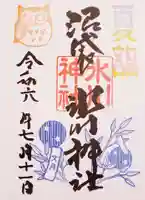 夏詣
沼袋氷川神社
氷川神社
令和六年七月十一日